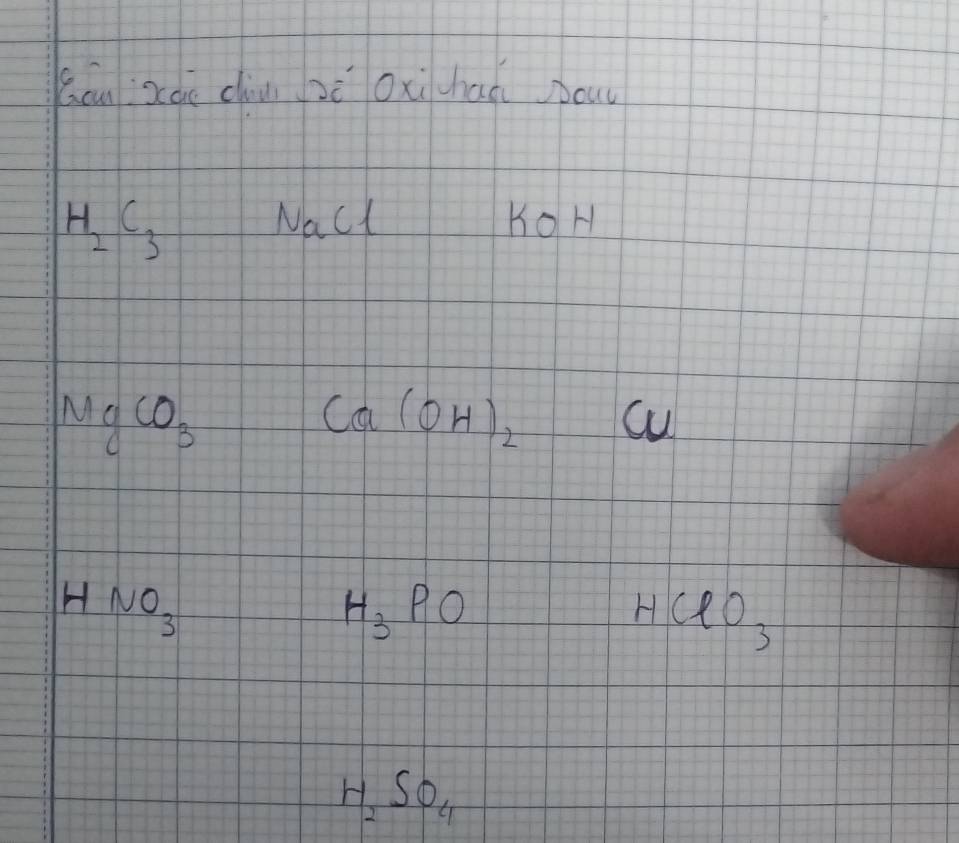 xác định số Oxi hoá sau
H₂C₃ NaCl KOH
MgCO₃ Ca(OH)₂ Cu
HNO₃ H₃PO HClO₃
H₂SO₄